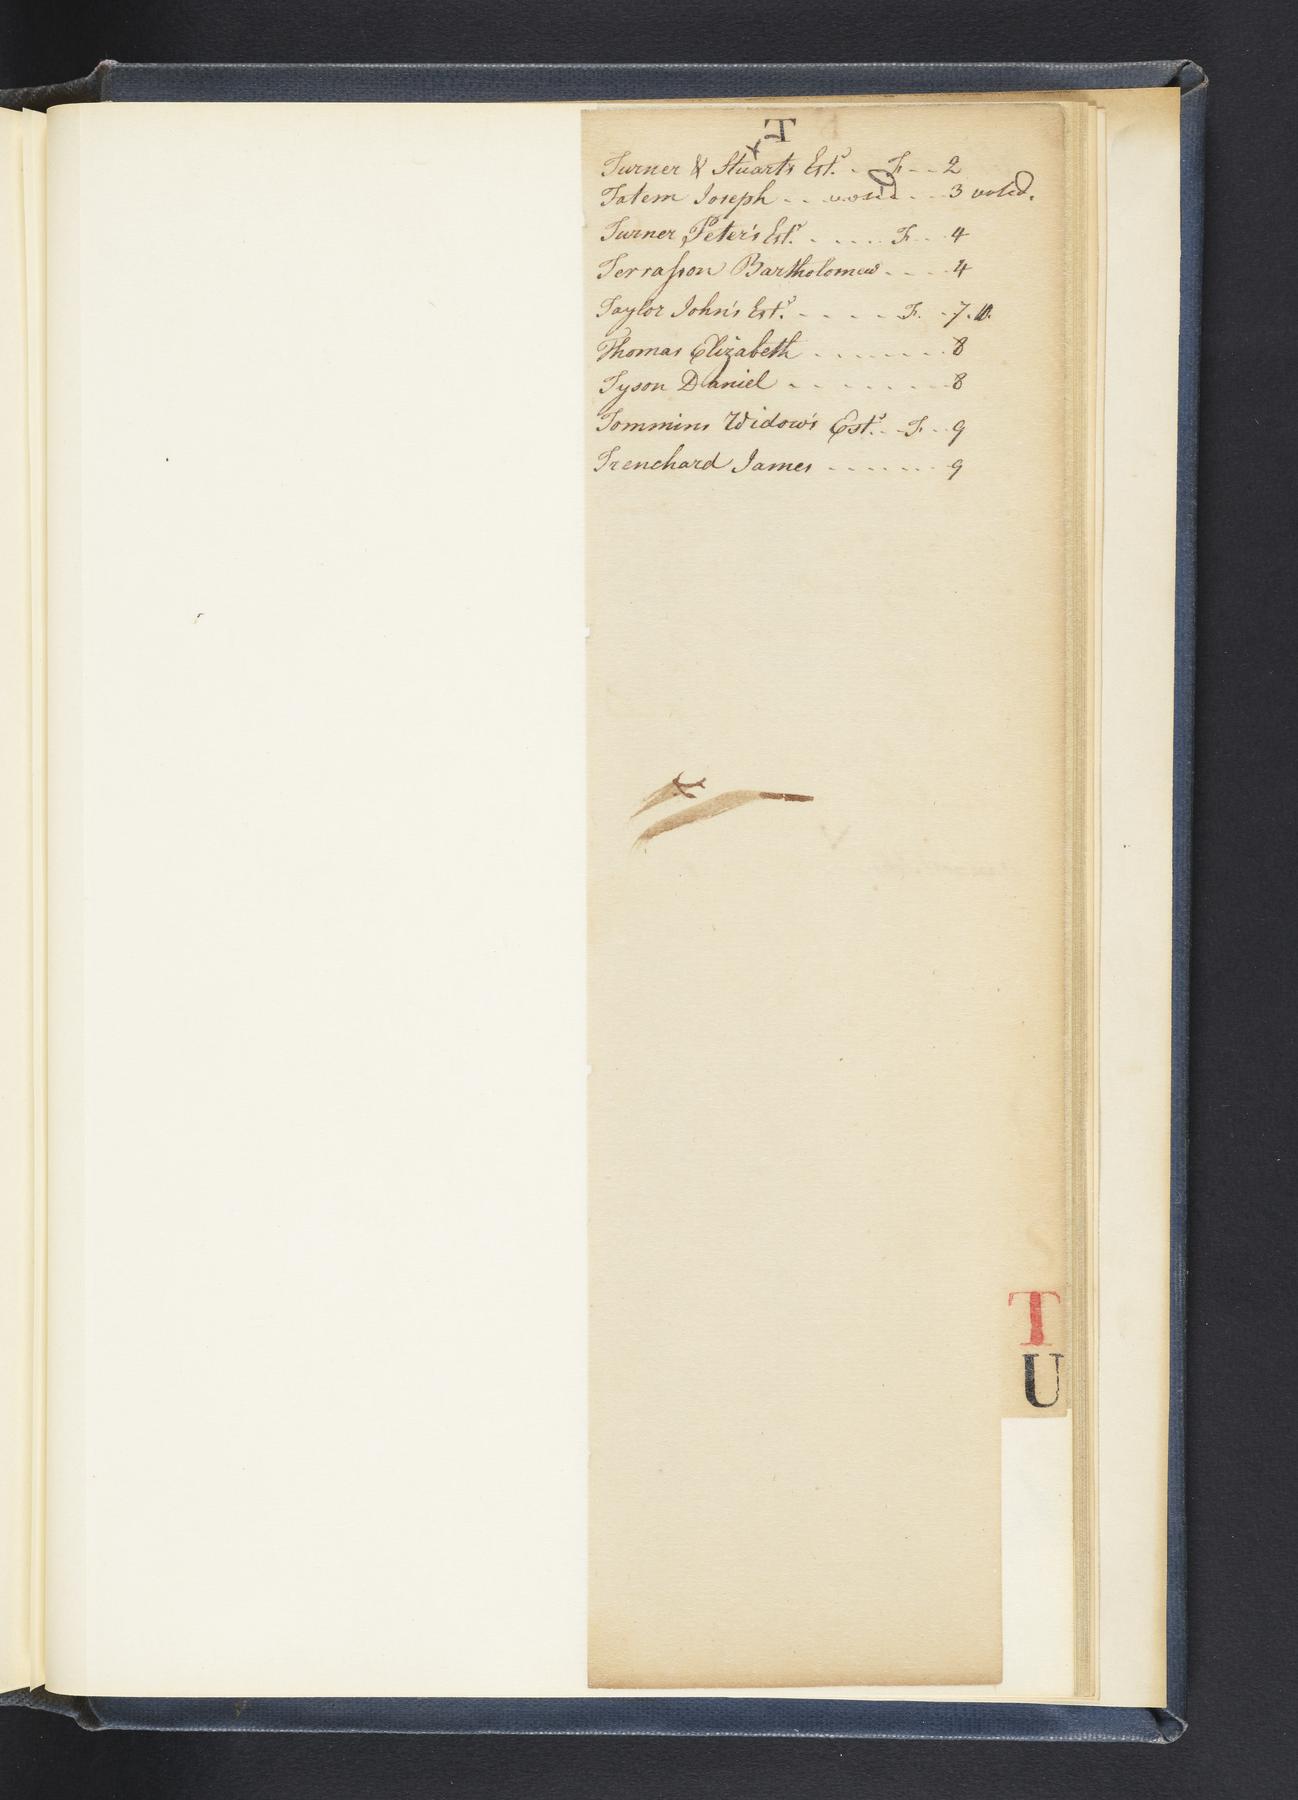 T
Turner & Stuarts Est.s . F - - 2
Tatem Joseph . . . void . . . 3 void.
Turner Peter's Est.s . . . . . F . . 4
Terraſson Bartholomew . . . . 4
Taylor John's Est.s . . . . . F. . 7. 10.
Thomas Elizabeth . . . . . . . . 8
Tyson Daniel . . . . . . . . 8
Tommins Widow's Est.s . . F . . 9
Trenchard James . . . . . . . 9
T
U